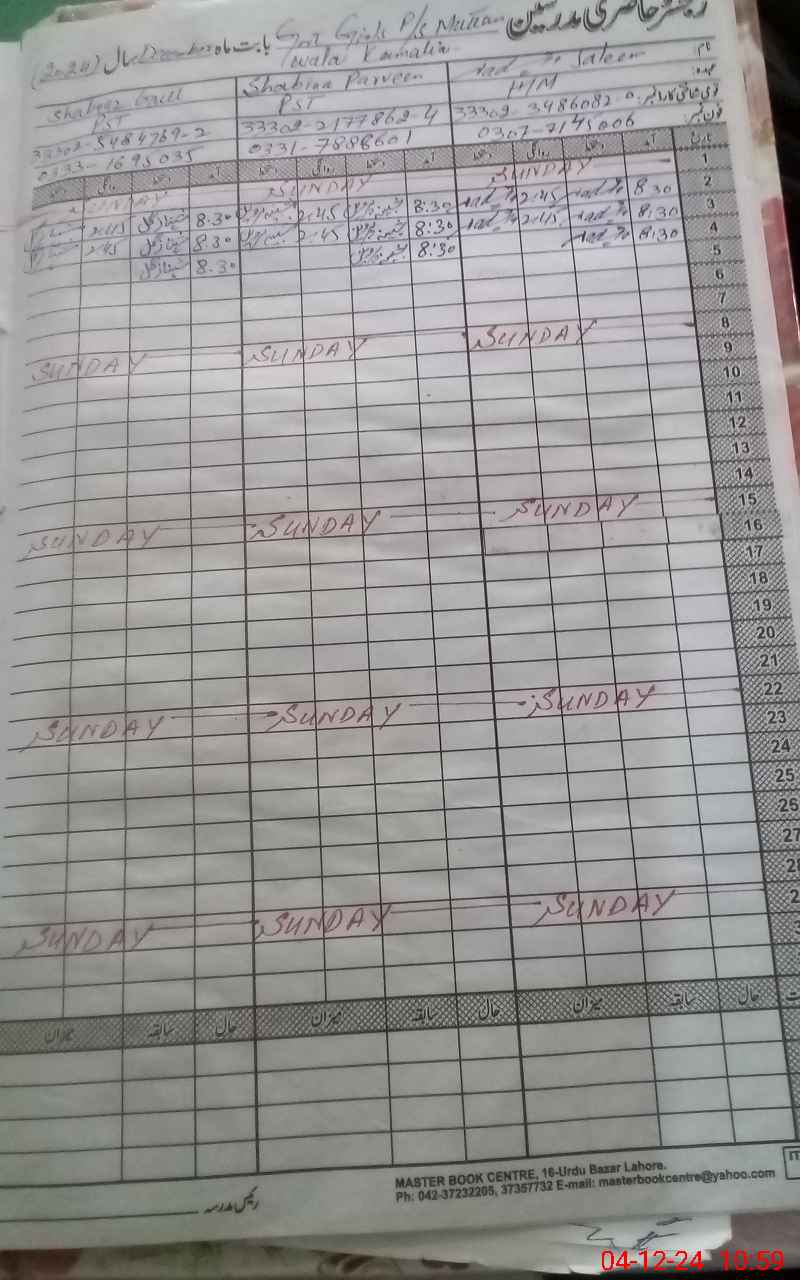 رجسٹر حاضری مدرسین Govt Girls P/s Mutian بابت ماہ December سال (2024)
wala Kamalia
نام Saleem Shabina Parveen Shahnaz
عہدہ H/M PST PST
33302-3486082-0 33302-2177862-4 33302-5484769-2
فون نمبر 0307-7145006 0331-7888601 0333-1695035
تاریخ آمد دستخط روانگی دستخط آمد دستخط روانگی دستخط آمد دستخط روانگی دستخط
1 SUNDAY SUNDAY SUNDAY
2 8:30 2:45 8:30 2:45 8:30 2:45
3 8:30 2:45 8:30 2:45 8:30 2:45
4 8:30 8:30 8:30
5
6
7
8 SUNDAY SUNDAY SUNDAY
9
10
11
12
13
14
15 SUNDAY SUNDAY SUNDAY
16
17
18
19
20
21
22 SUNDAY SUNDAY SUNDAY
23
24
25
26
27
SUNDAY SUNDAY SUNDAY
حال سابقہ میزان حال سابقہ میزان حال سابقہ میزان
رئیس مدرسہ
MASTER BOOK CENTRE, 16-Urdu Bazar Lahore.
Ph: 042-37232205, 37357732 E-mail: masterbookcentre@yahoo.com
04-12-24 10:59